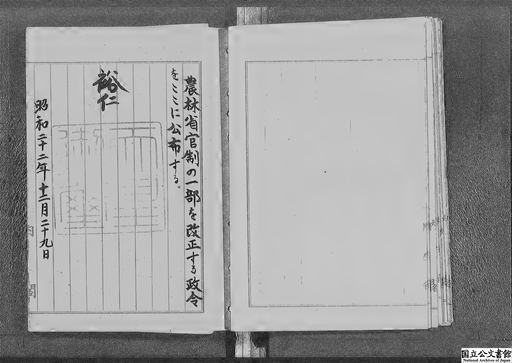 農林省官制の一部を改正する政令
をここに公布する。
裕仁
天皇御璽
昭和二十二年十二月二十九日
内閣
国立公文書館
National Archives of Japan